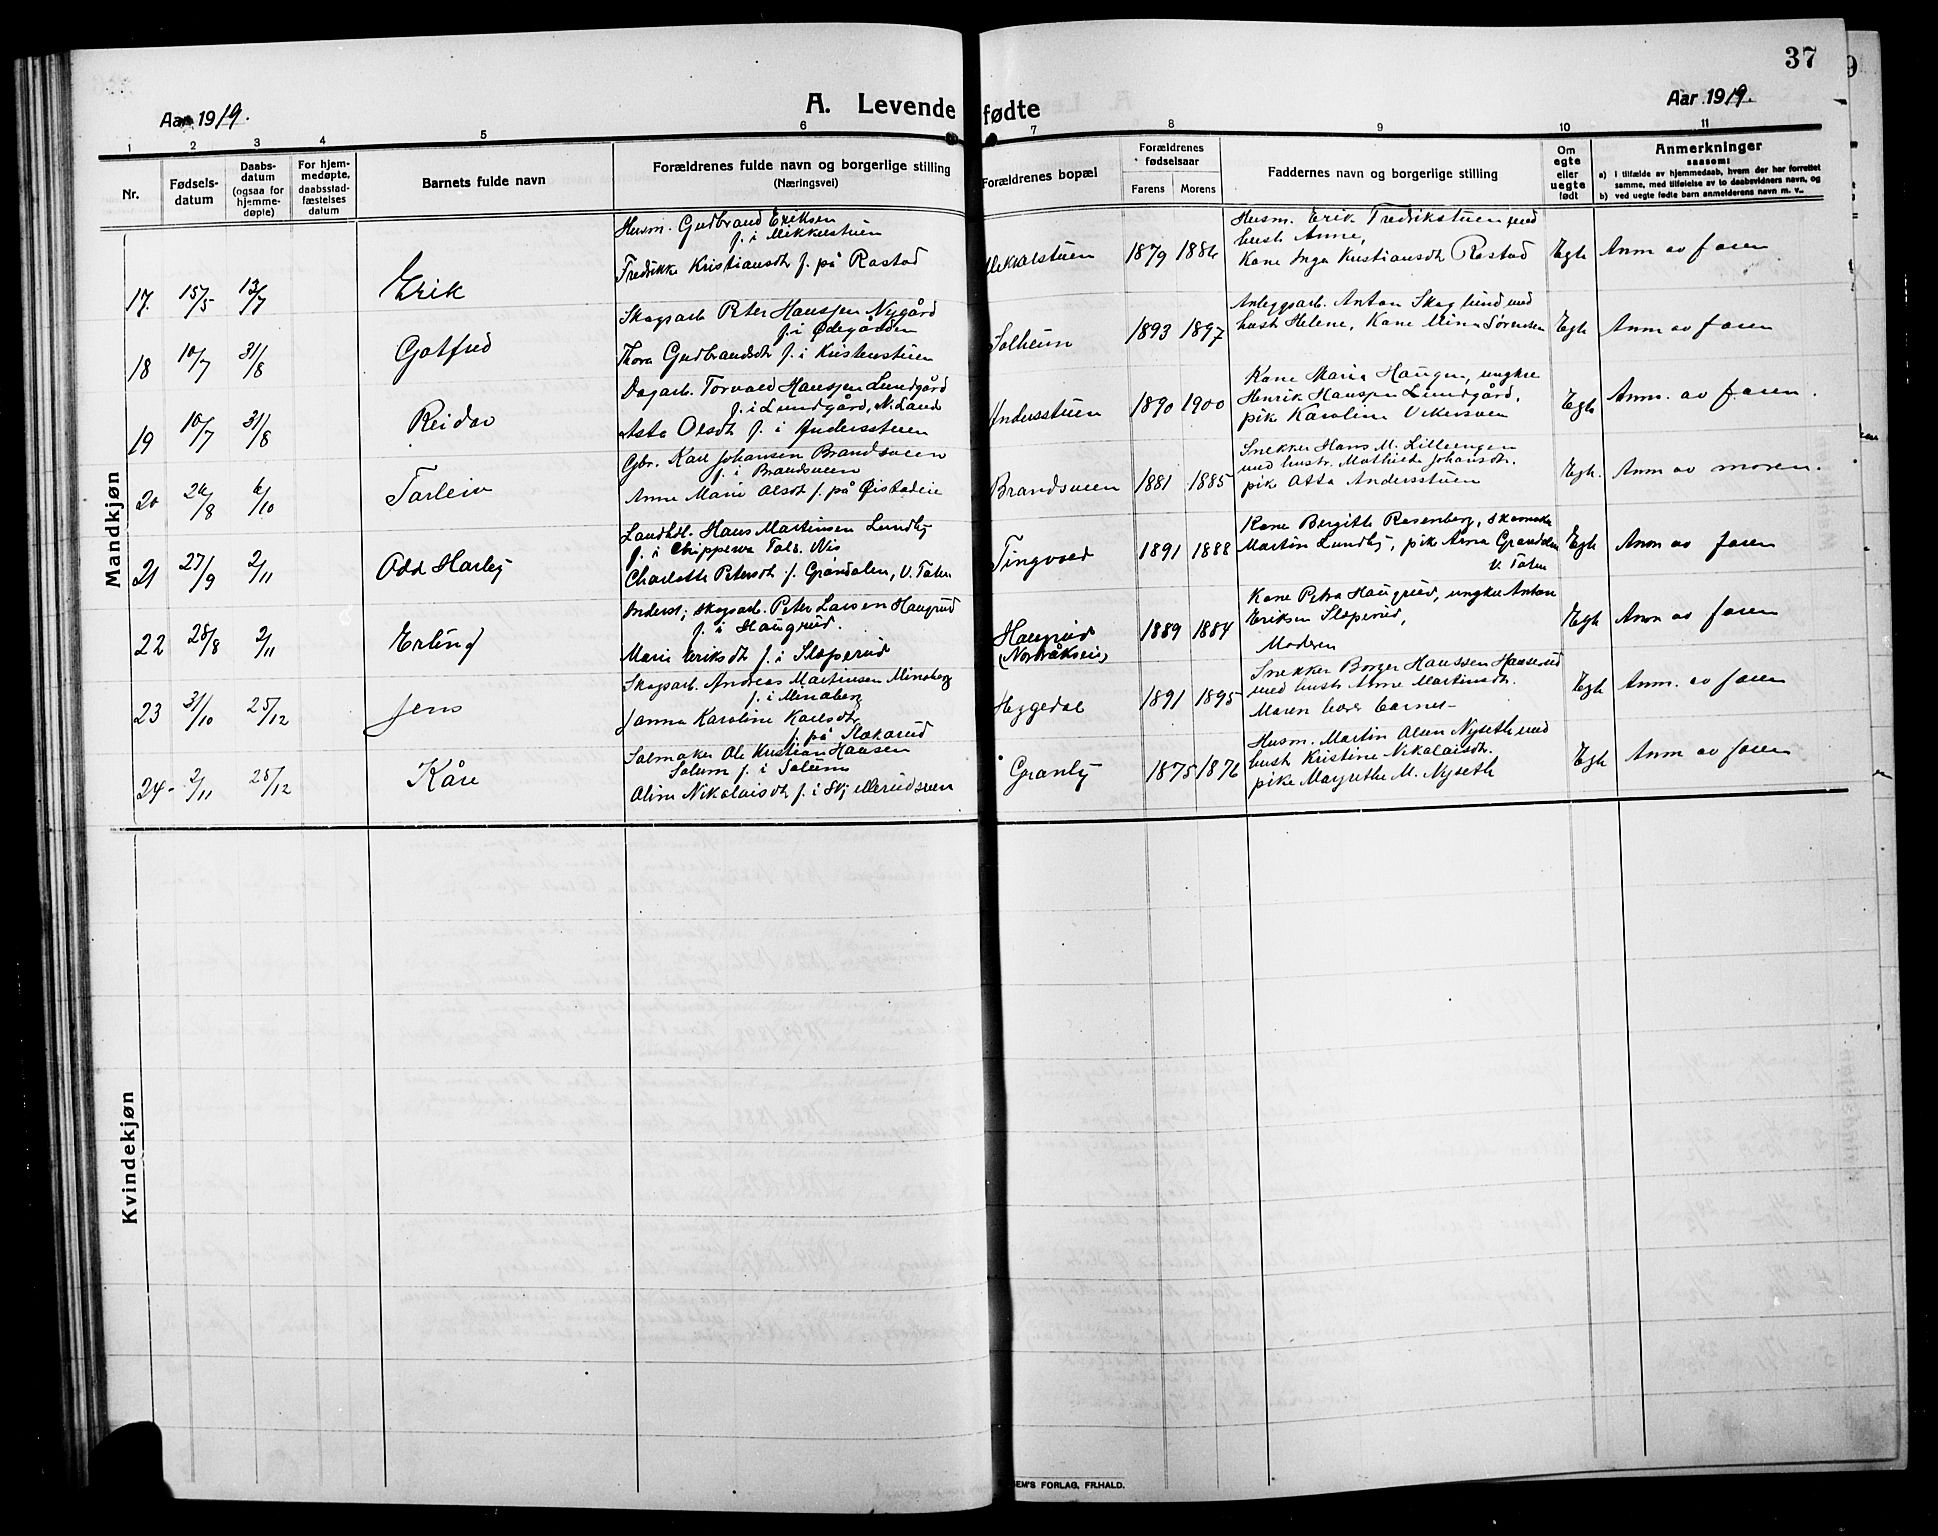 37
Aar 1919.
A. Levende fødte
Aar 1919.
1 2 3 4 5 6 7 8 9 10 11
Nr.
Fødsels-
datum
Daabs-
datum
(ogsaa for
hjemme-
døpte)
For hjem-
medøpte,
daabsstad-
fæstelses
datum
Barnets fulde navn
Forældrenes fulde navn og borgerlige stilling
(Næringsvei)
Forældrenes bopæl
Forældrenes
fødselsaar
Farens Morens
Faddernes navn og borgerlige stilling
Om
egte
eller
uegte
født
Anmerkninger
saasom:
a) I tilfælde av hjemmedaab, hvem der har forrettet
samme, med tilføielse av to daabsvidners navn, og
b) ved uegte fødte barn anmelderens navn m. v..
Mandkjøn
17. 15/5 13/7 Erik
Husm. Gudbrand Eriksen
f. i Mikkelstuen
Fredrikke Kristiansdt f. på Rastad
Mikkelstuen 1879 1886
Husm. Erik Fredrikstuen med
hust Anne,
Kone Inga Kristiansdt Rastad
Egte Anm av faren
18 10/7 31/8 Gotfred
Skogsarb. Peter Hanssen Nygård
f. i Ødegården
Thora Gudbrandsdt f. i Kristenstuen
Solheim 1893 1897
Anleggsarb. Anton Skoglund med
hust Helene, Kone Mina Sørensen
Egte Anm av faren
19 10/7 31/8 Reidar
Dagarb. Torvald Hanssen Lundgård
f. i Lundgård, N. Land
Asta Olsdt f. i Andersstuen
Andersstuen 1890 1900
Kone Maria Haugen, ungkar
Henrik Hanssen Lundgård,
pik Karoline
Egte Anm. av faren.
20 26/8 6/10 Torleiv
Gbr. Karl Johansen Brandsveen
f. i Brandsveen
Anne Marie Olsdt f. på
Brandsveen 1881 1885
Snekker Hans M. Lilleengen
med hustr. Mathilde Johansdt.
pik Otta Andersstuen
Egte. Anm av moren.
21 27/9 2/11 Odd Harley
Landhdl. Hans Martinsen Lundby
f. i Chippewa Fals. Wis
Charlotte Petersdt f. Grandalen, V. Toten
Tingvold 1891 1888
Kone Bergitte Rosenberg,
Martin Lundby, pik Anna Grandalen
V. Toten
Egte Anm av faren
22 28/8 2/11 Erling
Inderst, skogsarb. Peter Larsen Haugrud
f. i Haugrud.
Marie Eriksdt f. i Sloperud
Haugrud
1889 1884
Kone Petra Haugrud, ungkar Anton
Eriksen Sloperud,
Moderen
Egte Anm av faren
23 31/10 25/12 Jens
Skogsarb. Andreas Martinsen Minaberg
f. i Minaberg
Janna Karoline Karlsdtr
f. på Slokarud
Heggedal 1891 1895
Snekker Borger Hanssen
med hust Anne Martinsdt.
Moren bærer barnet
Egte Anm. av faren
24 2/11 25/12 Kåre
Salmaker Ole Kristian Hansen
Solum f. i Solum
Oline Nikolaisdt f. i Skjellerudsveen
Granly 1875 1876
Husm. Martin Olsen Nyseth med
hust Kristine Nikolaisdt.
pike Margrethe M. Nyseth
Egte Anm av faren
Kvindekjøn
EM'S FORLAG, FR.HALD.